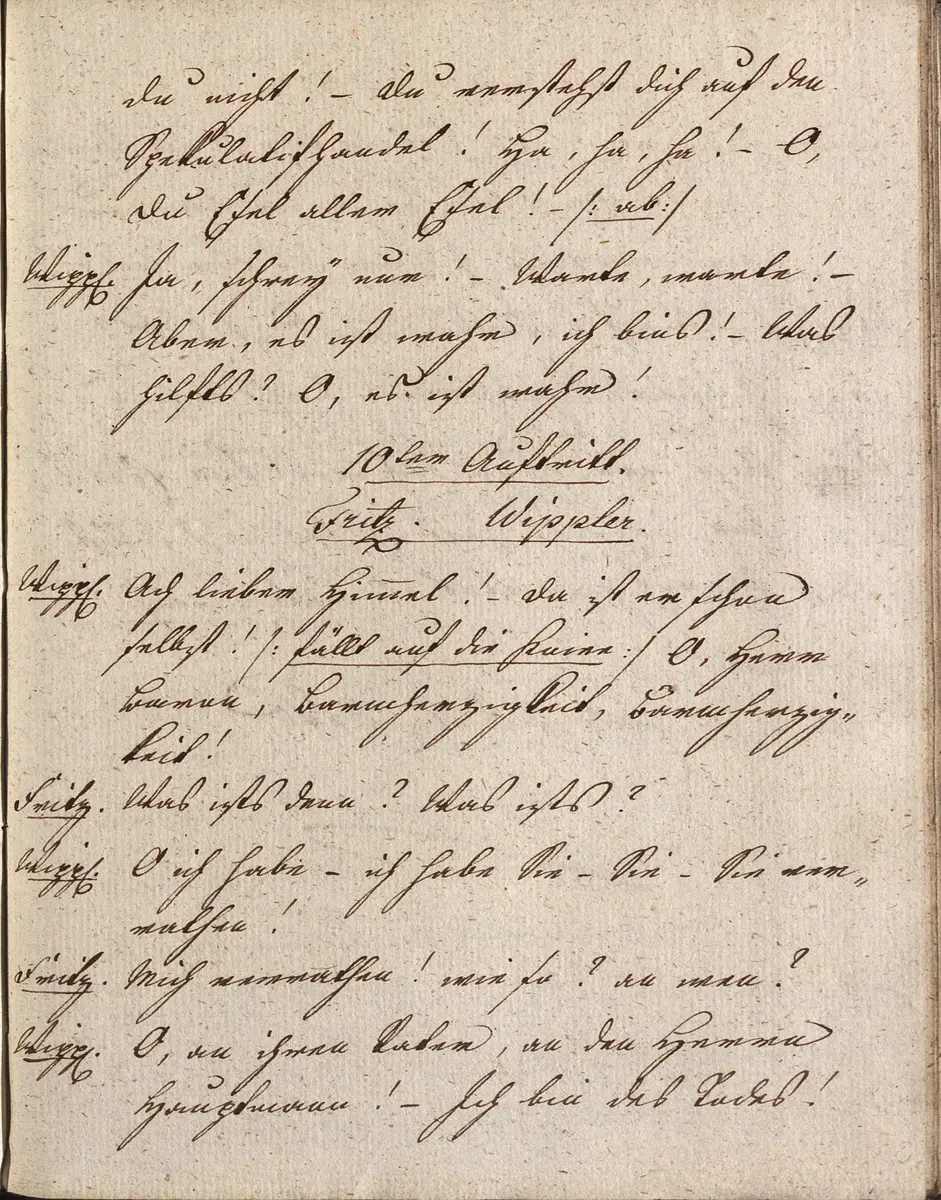 du nicht! – Du verstehst dich auf den
Spekulatifhandel! Ha, ha, ha! – O,
du Esel aller Esel! – /: ab :/
Wippl. Ja, schrey nur! – Warte, warte! –
Aber, es ist wahr, ich bins! – Was
hilfts? O, es ist wahr!
10ter Auftritt.
Fritz. Wippler.
Wippl. Ach lieber Himmel! – da ist er schon
selbst! /: fällt auf die Kniee :/ O, Herr
Baron, Barmherzigkeit, Barmherzig„
keit!
Fritz. Was ists denn? Was ists?
Wippl. O ich habe – ich habe Sie – Sie – Sie ver„
rathen!
Fritz. Mich verrathen! wie so? an wen?
Wippl. O, an ihren Vater, an den Herrn
Hauptmann! – Ich bin des Todes!